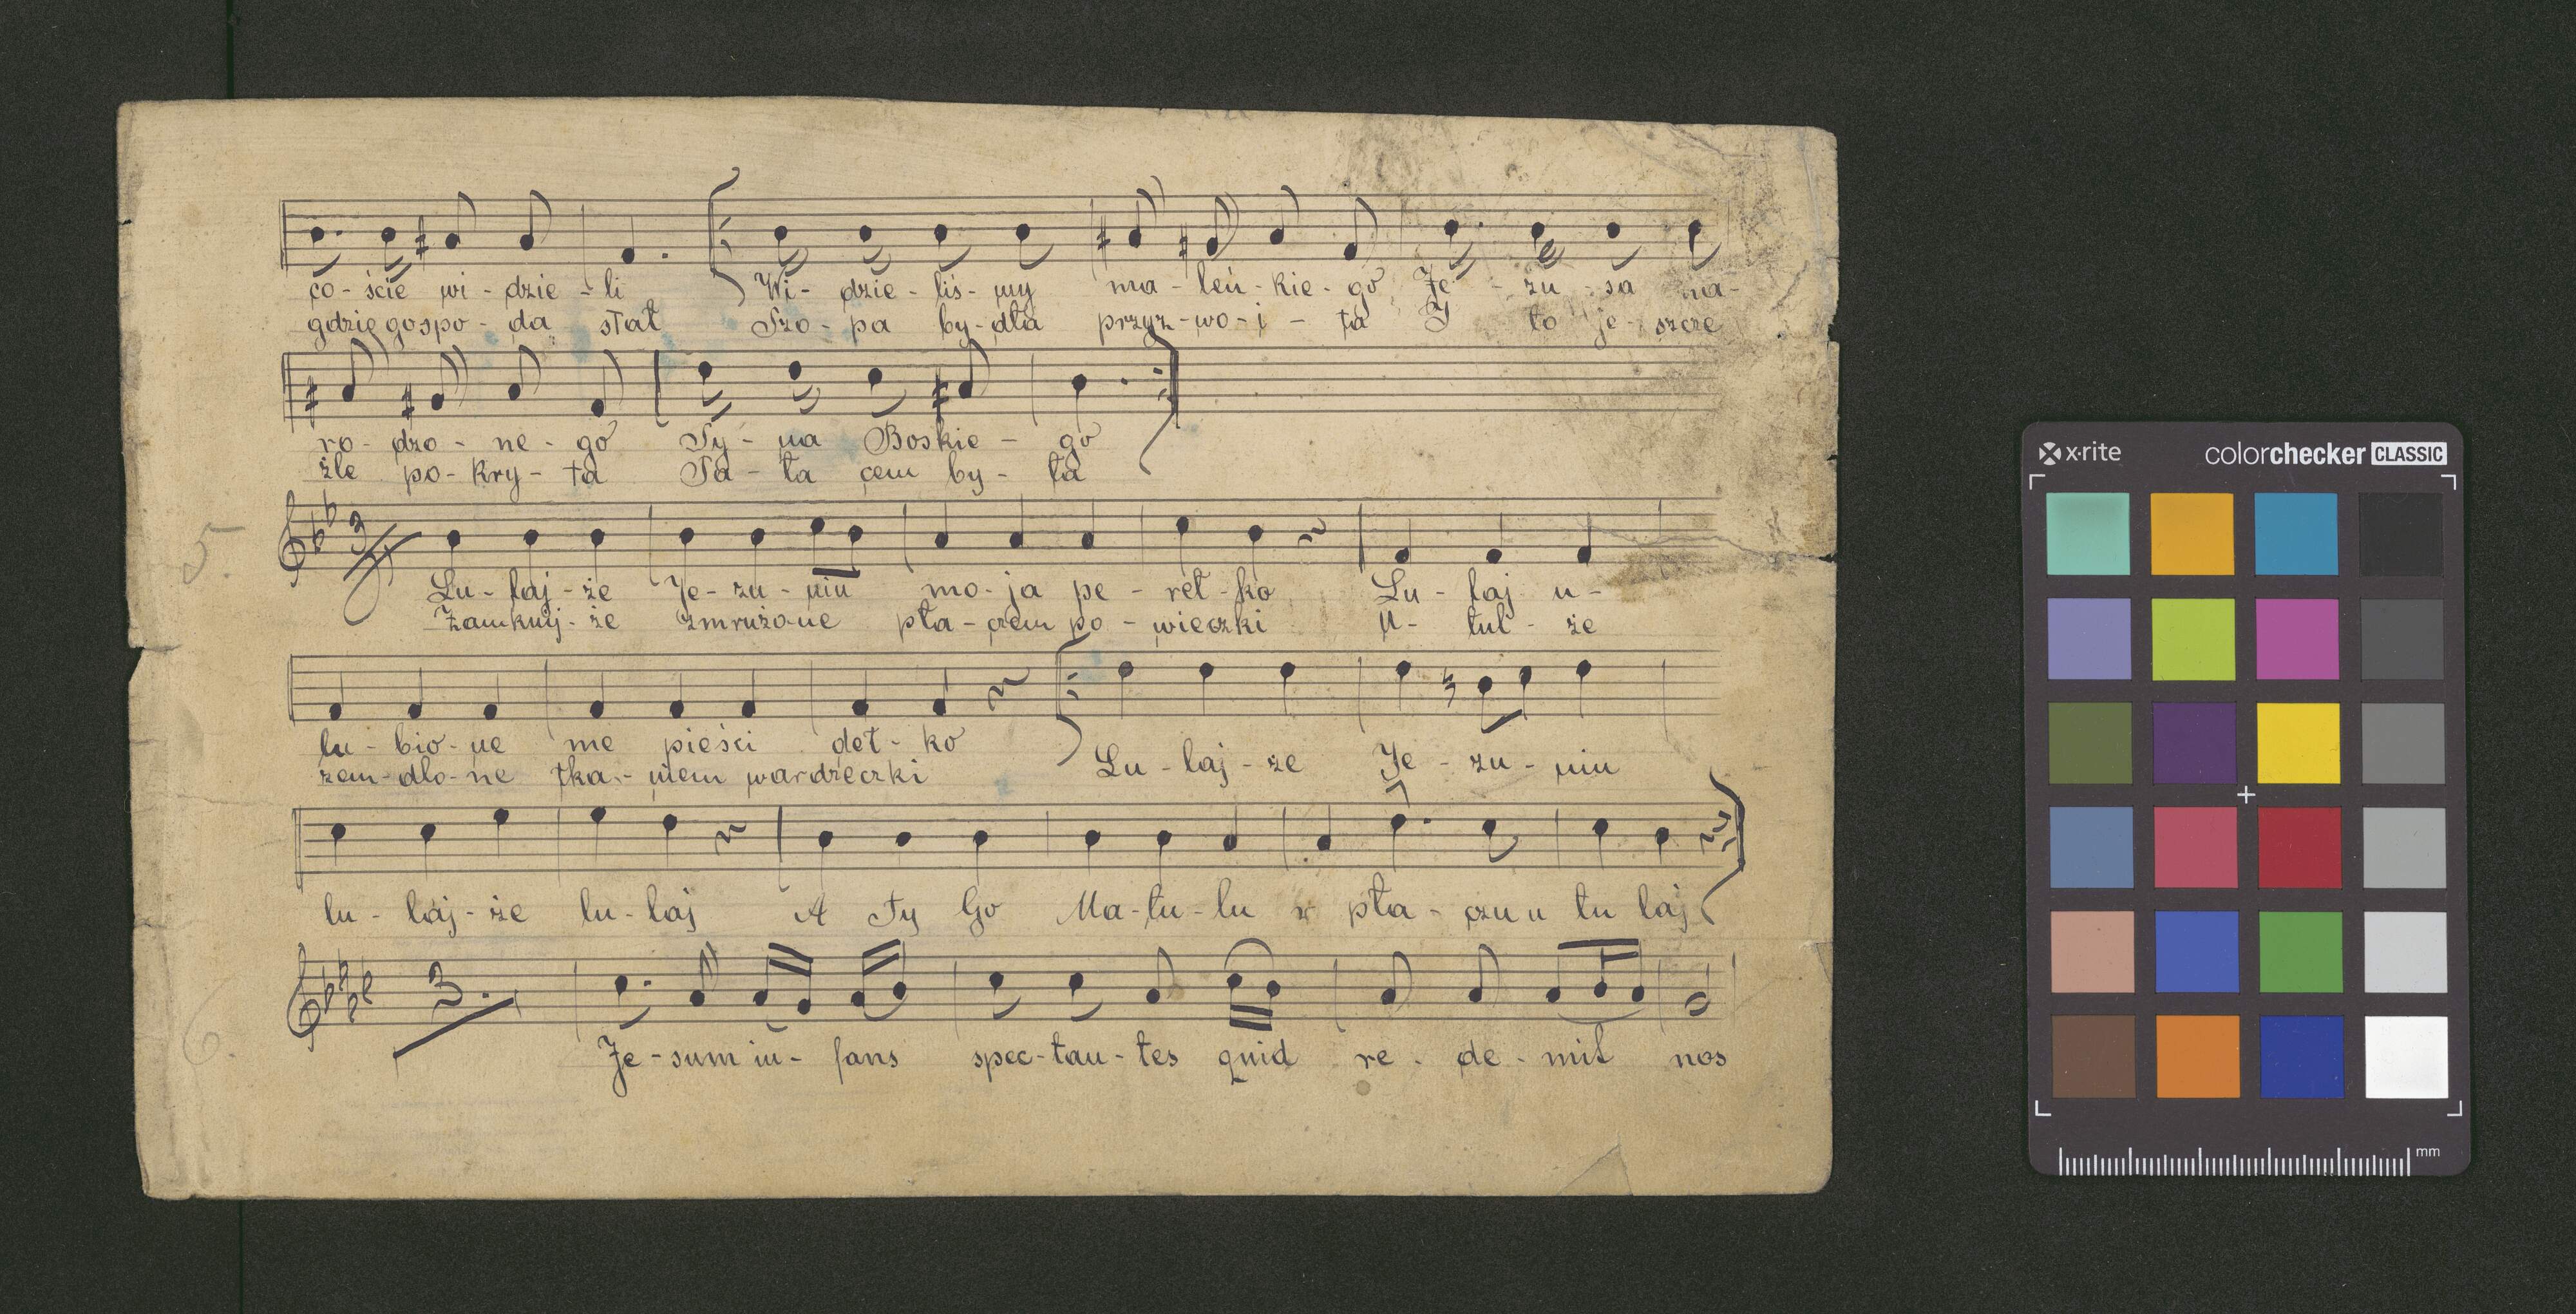 co-ście wi-dzie-li Wi-dzie-lis-my ma-leń-kie-go Je-zu-sa na-
gdzie gospo-da stał Szo-pa by-dła przyz-wo-i-ta I to je-szcze
ro-dzo-ne-go Sy-na Boskie-go
źle po-kry-ta Pa-ła cem by-ła
5.
3
Lu-laj-że Je-zu-niu mo-ja pe-reł-ko Lu-laj u-
Zamknij-że zmrużone pła-czem po-wieczki U-tul-że
lu-bio-ne me pieści deł-ko Lu-laj-że Je-zu-niu
zem-dlo-ne łka-niem wardzeczki
lu-laj-że lu-laj A Ty Go Ma-tu-lu w pła-czu u tu laj
6.
3.
Je-sum in-fans spec-tan-tes quid re-de-mit nos
x·rite colorchecker CLASSIC
mm